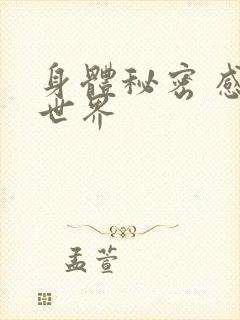 身體秘密 感
世界
孟萱